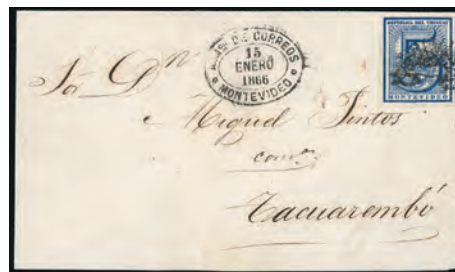 Aᵒⁿ DE CORREOS
15
ENERO
1866
MONTEVIDEO
REPUBLICA DEL URUGUAY
MONTEVIDEO
Sõr Dⁿ
Miguel Pintos
Tacuarembó